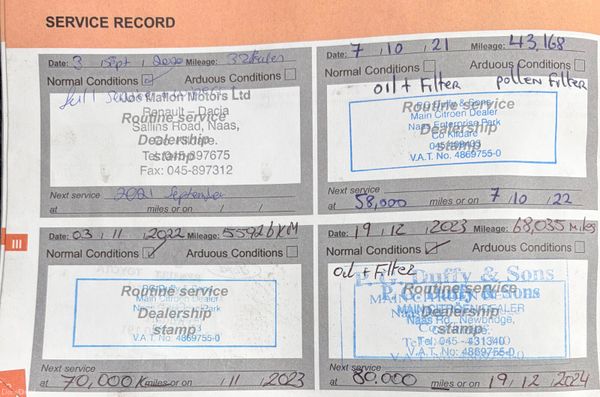 SERVICE RECORD
Date: 3 Sept 2020 Mileage:
Normal Conditions ☑ Arduous Conditions ☐
full service
Joe Mallon Motors Ltd
Renault – Dacia
Routine service
Sallins Road, Naas,
Dealership
Co. Kildare.
stamp
Tel: 045-897675
Fax: 045-897312
Next service
2021 September
at miles or on / /
Date: 7 / 10 / 21 Mileage: 43,168
Normal Conditions ☐ Arduous Conditions ☐
oil + Filter pollen Filter
PG Duffy & Sons
Routine service
Main Citroen Dealer
Naas Enterprise Park
Dealership
Co Kildare
stamp
V.A.T. No. 4869755-0
Next service
at 58,000 miles or on 7 / 10 / 22
III
Date: 03 / 11 / 2022 Mileage: 55926 KM
Normal Conditions ☑ Arduous Conditions ☐
Routine service
Main Citroen Dealer
Dealership
stamp
V.A.T. No. 4869755-0
Next service
at 70,000 K miles or on / 11 / 2023
Date: 19 / 12 / 2023 Mileage: 68,035 Miles
Normal Conditions ☑ Arduous Conditions ☐
Oil + Filter
P. G. Duffy & Sons
Routine service
MAIN CITROEN DEALER
Dealership
Naas Rd., Newbridge,
stamp
Tel: 045 - 431340
V.A.T. No: 4869755-0
Next service
at 80.000 miles or on 19 / 12 / 2024